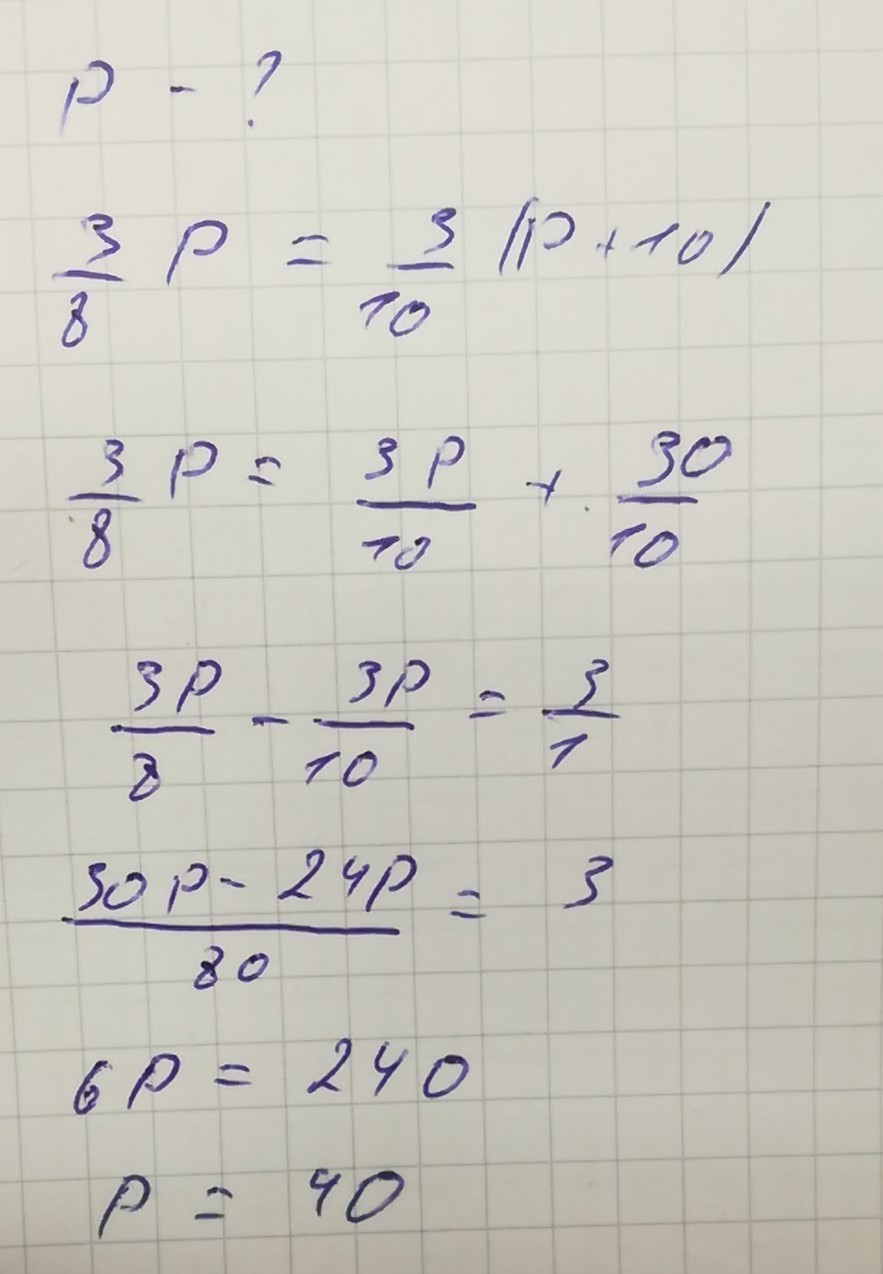 P - ?
3/8 P = 3/10 (P + 10)
3/8 P = 3P/10 + 30/10
3P/8 - 3P/10 = 3/1
30P - 24P/80 = 3
6P = 240
P = 40